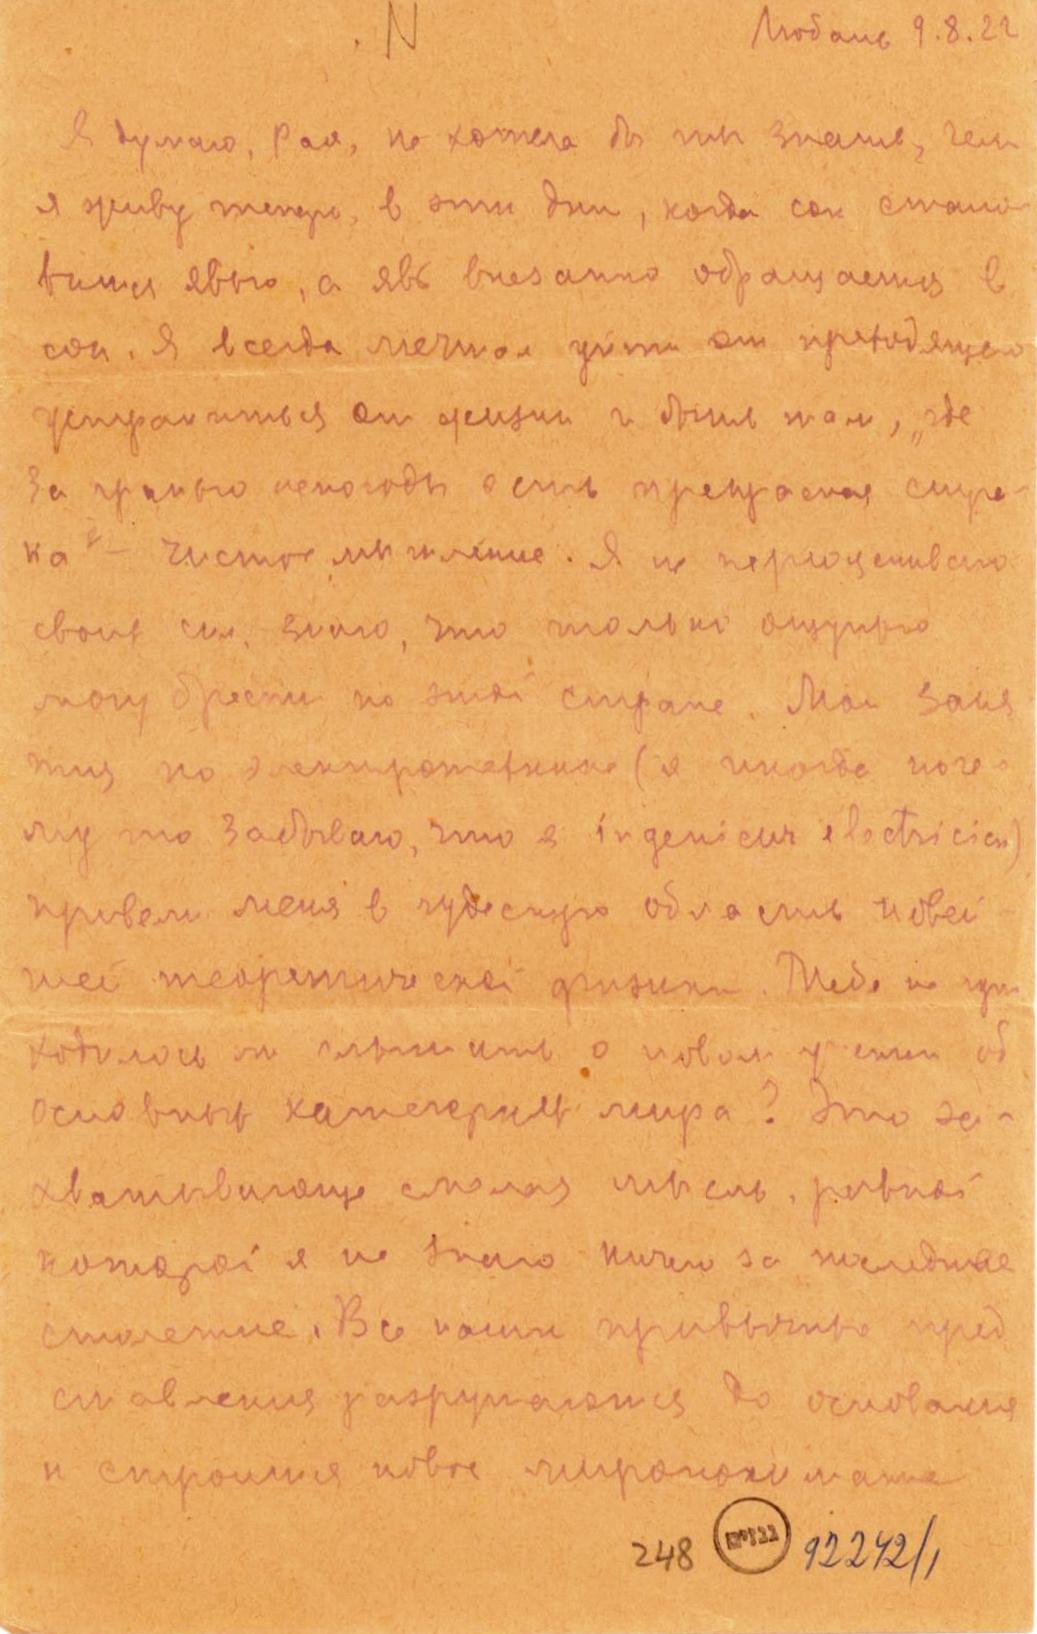 N
Любань 9.8.22
Я думаю, Рая, не хотела бы ты знать, чем
я живу теперь, в эти дни, когда сон стано
вится явью, а явь внезапно обращается в
сон. Я всегда мечтал уйти от преходящего
устраниться от жизни и быть там, „где
за гранью непогоды есть прекрасная стра-
на" – чистое мышление. Я не переоцениваю
своих сил, знаю, что только ощупью
могу брести по этой стране. Мои заня
тия по электротехнике (я иногда поче-
му то забываю, что я ingenieur electricien)
привели меня в чудесную область новей-
шей теоретической физики. Тебе не при
ходилось ли слышать о новом учении об
основных категориях мира? Это за-
хватывающе смелая мысль, равной
которой я не знаю ничего за последнее
столетие. Все наши привычные пред
ставления разрушаются до основания
и строится новое миропонимание
248 גנזים 92242/1